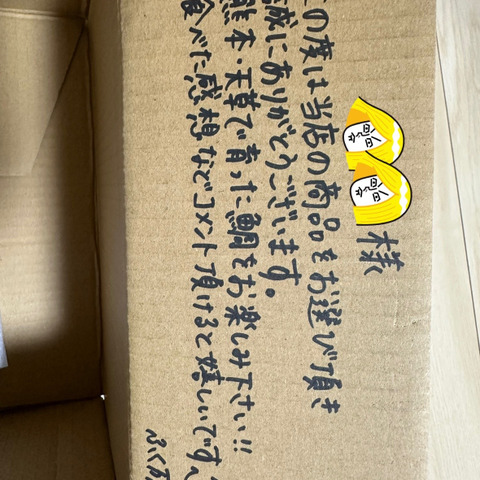 様
この度は当店の商品をお選び頂き
誠にありがとうございます。
熊本・天草で育った鯛をお楽しみ下さい!!
食べた感想などコメント頂けると嬉しいです
ふく